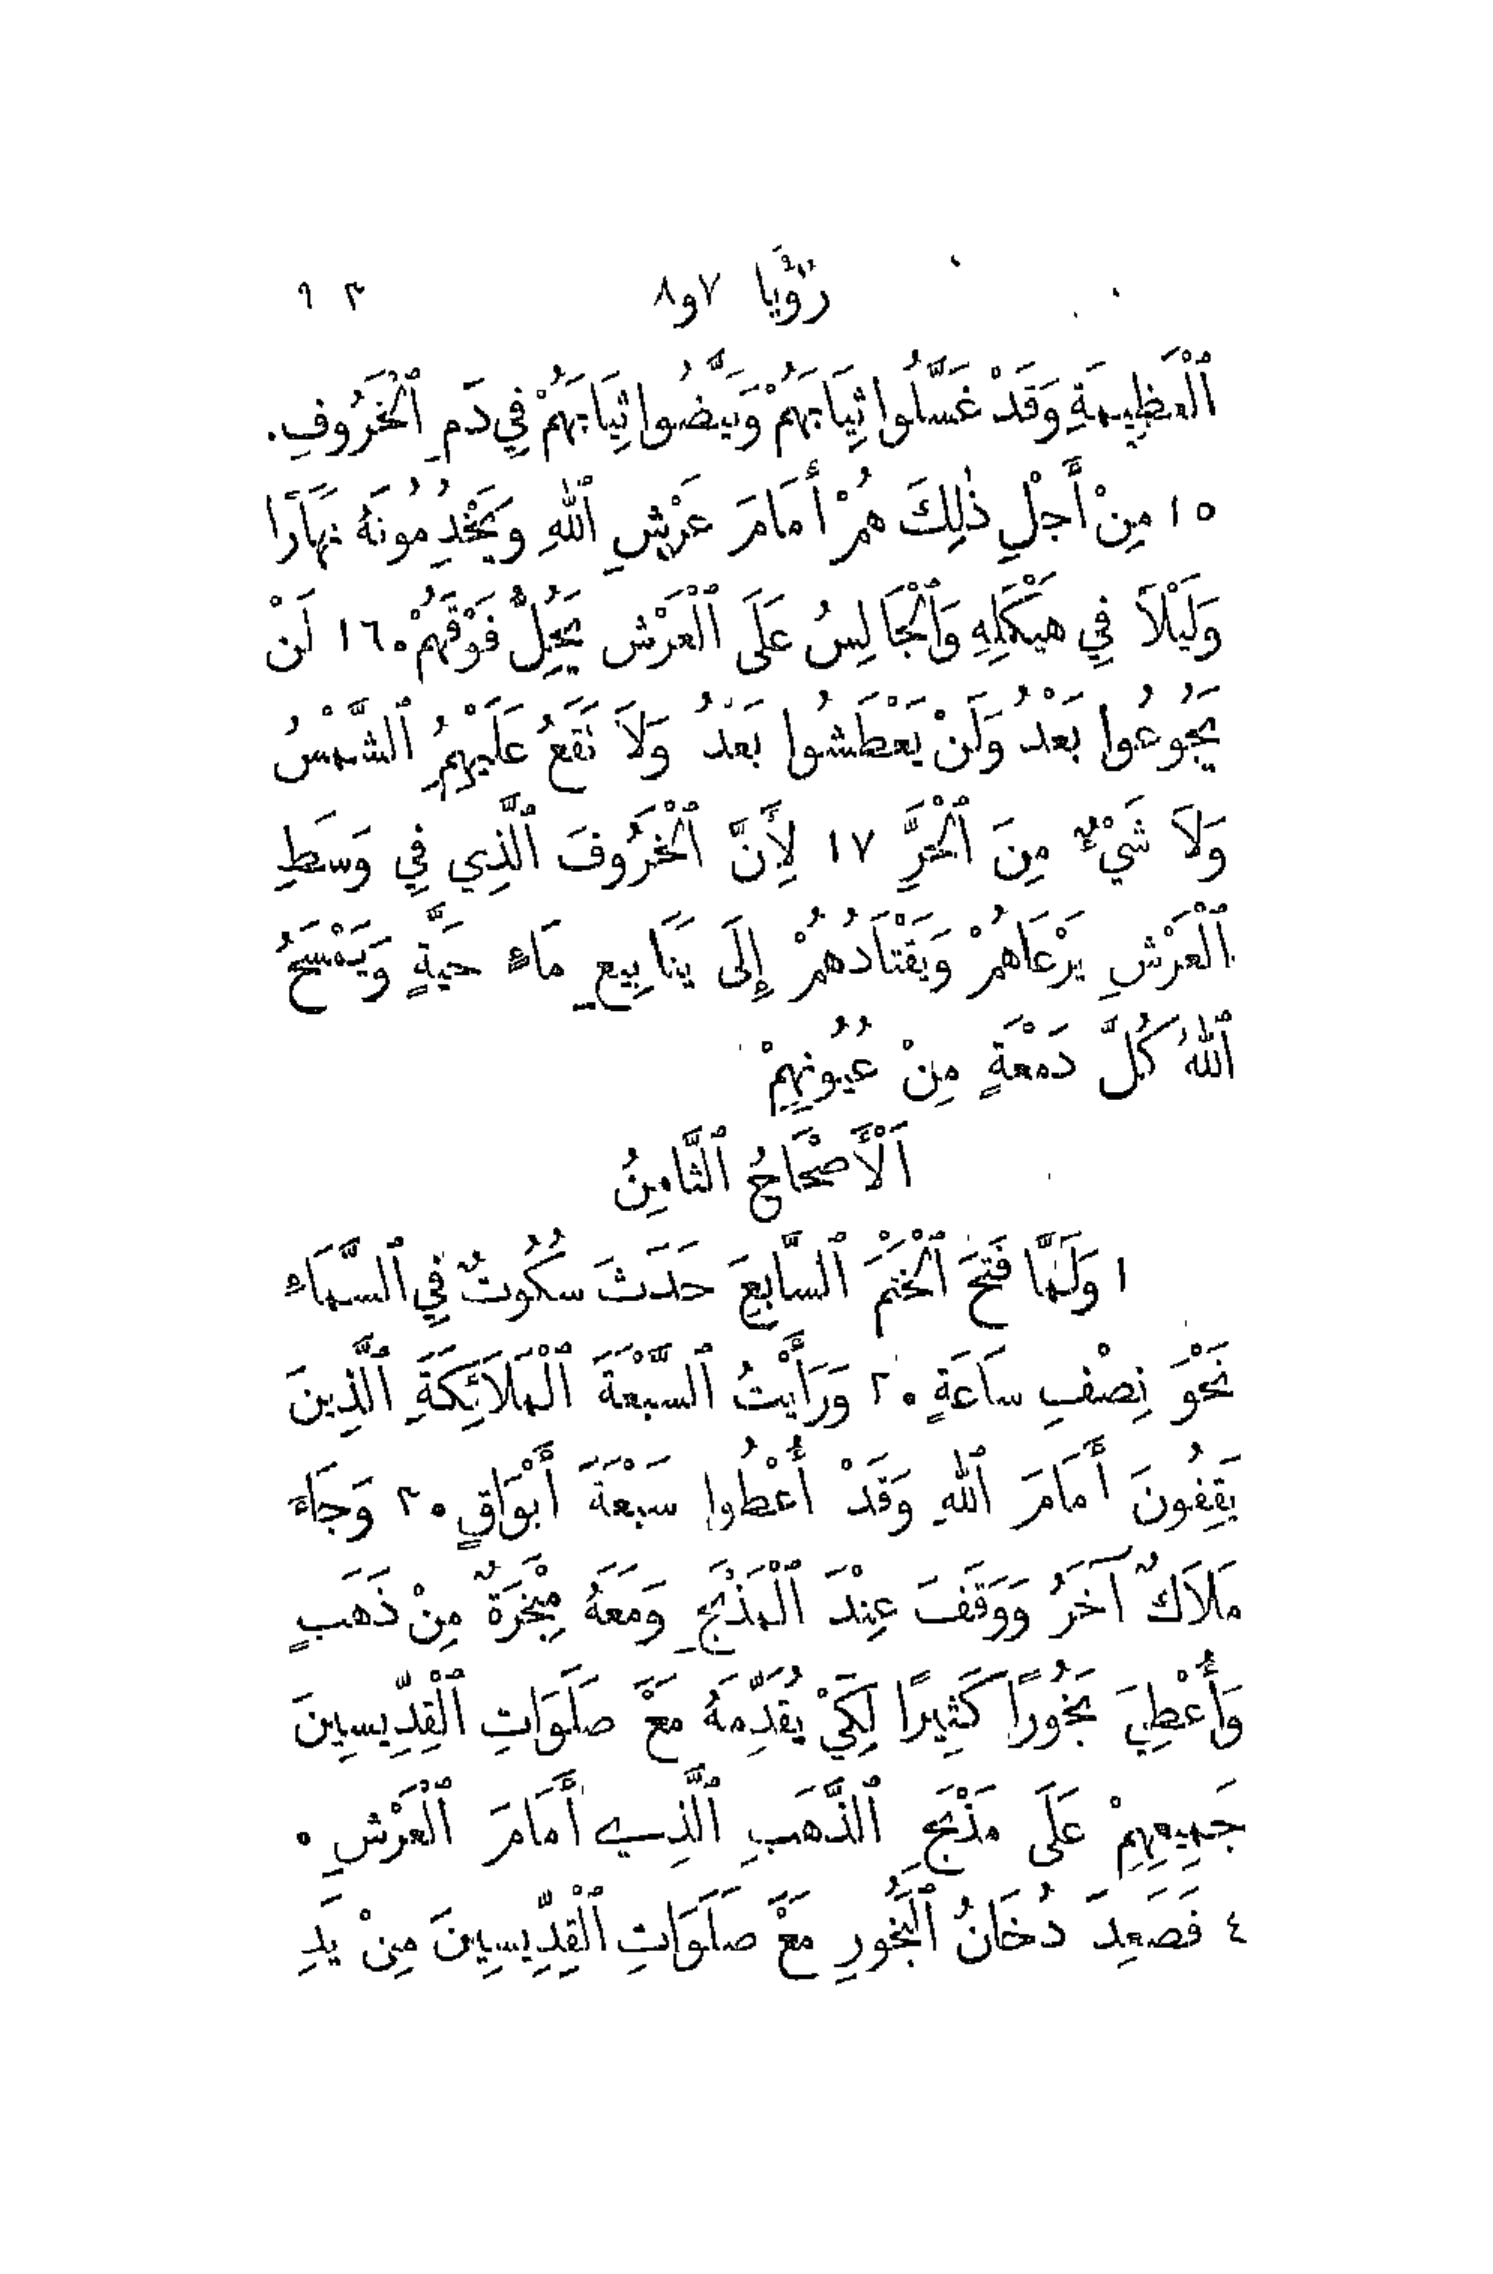 رُؤْيَا ٧ و٨ ٩٣
ٱلْعَظِيمَةِ وَقَدْ غَسَّلُوا ثِيَابَهُمْ وَبَيَّضُوا ثِيَابَهُمْ فِي دَمِ ٱلْخَرُوفِ.
١٥ مِنْ أَجْلِ ذٰلِكَ هُمْ أَمَامَ عَرْشِ ٱللهِ وَيَخْدِمُونَهُ نَهَارًا
وَلَيْلًا فِي هَيْكَلِهِ وَٱلْجَالِسُ عَلَى ٱلْعَرْشِ يَحِلُّ فَوْقَهُمْ. ١٦ لَنْ
يَجُوعُوا بَعْدُ وَلَنْ يَعْطَشُوا بَعْدُ وَلَا تَقَعُ عَلَيْهِمُ ٱلشَّمْسُ
وَلَا شَيْءٌ مِنَ ٱلْحَرِّ ١٧ لِأَنَّ ٱلْخَرُوفَ ٱلَّذِي فِي وَسَطِ
ٱلْعَرْشِ يَرْعَاهُمْ وَيَقْتَادُهُمْ إِلَى يَنَابِيعِ مَاءٍ حَيَّةٍ وَيَمْسَحُ
ٱللهُ كُلَّ دَمْعَةٍ مِنْ عُيُونِهِمْ
اَلْأَصْحَاحُ ٱلثَّامِنُ
١ وَلَمَّا فَتَحَ ٱلْخَتْمَ ٱلسَّابِعَ حَدَثَ سُكُوتٌ فِي ٱلسَّمَاءِ
نَحْوَ نِصْفِ سَاعَةٍ. ٢ وَرَأَيْتُ ٱلسَّبْعَةَ ٱلْمَلَائِكَةَ ٱلَّذِينَ
يَقِفُونَ أَمَامَ ٱللهِ وَقَدْ أُعْطُوا سَبْعَةَ أَبْوَاقٍ. ٣ وَجَاءَ
مَلَاكٌ آخَرُ وَوَقَفَ عِنْدَ ٱلْمَذْبَحِ وَمَعَهُ مِبْخَرَةٌ مِنْ ذَهَبٍ
وَأُعْطِيَ بَخُورًا كَثِيرًا لِكَيْ يُقَدِّمَهُ مَعَ صَلَوَاتِ ٱلْقِدِّيسِينَ
جَمِيعِهِمْ عَلَى مَذْبَحِ ٱلذَّهَبِ ٱلَّذِي أَمَامَ ٱلْعَرْشِ.
٤ فَصَعِدَ دُخَانُ ٱلْبَخُورِ مَعَ صَلَوَاتِ ٱلْقِدِّيسِينَ مِنْ يَدِ